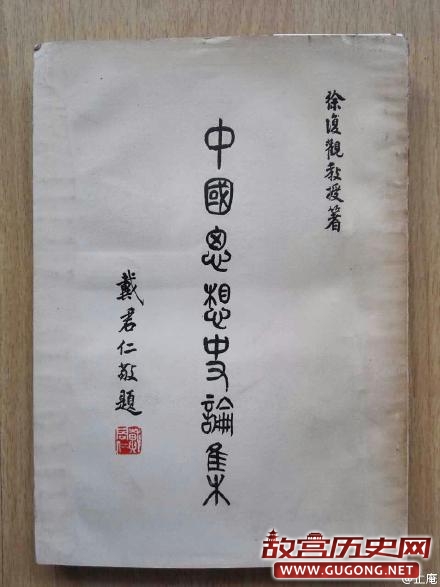 徐復觀教授著
中國思想史論集
戴君仁敬題
戴君仁
故宫历史网
WWW.GUGONG.NET
@止庵